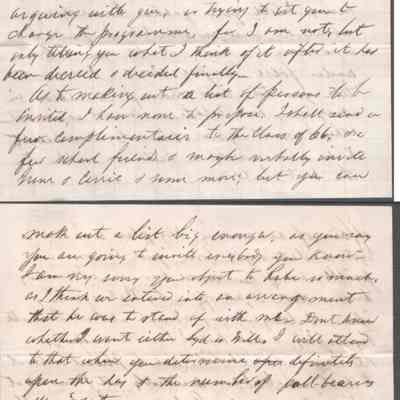 arguing with you, or trying to get you to
change the programme, for I am not, but
only telling you what I think of it after it has
been decreed & decided finally—
As to making out a list of persons to be
invited, I have none to propose. I shall send a
few complimentaries to the Class of 66, or a
few school friends & maybe verbally invite
some & some more, but you can
make out a list big enough, as you say
you are going to invite everybody you know—
I am very sorry you object to so much,
as I think we entered into an arrangement
that he was to stand up with me. Dont know
whether I want either or Willis I will attend
to that when you determine definitely
upon the day & the number of pall bearers